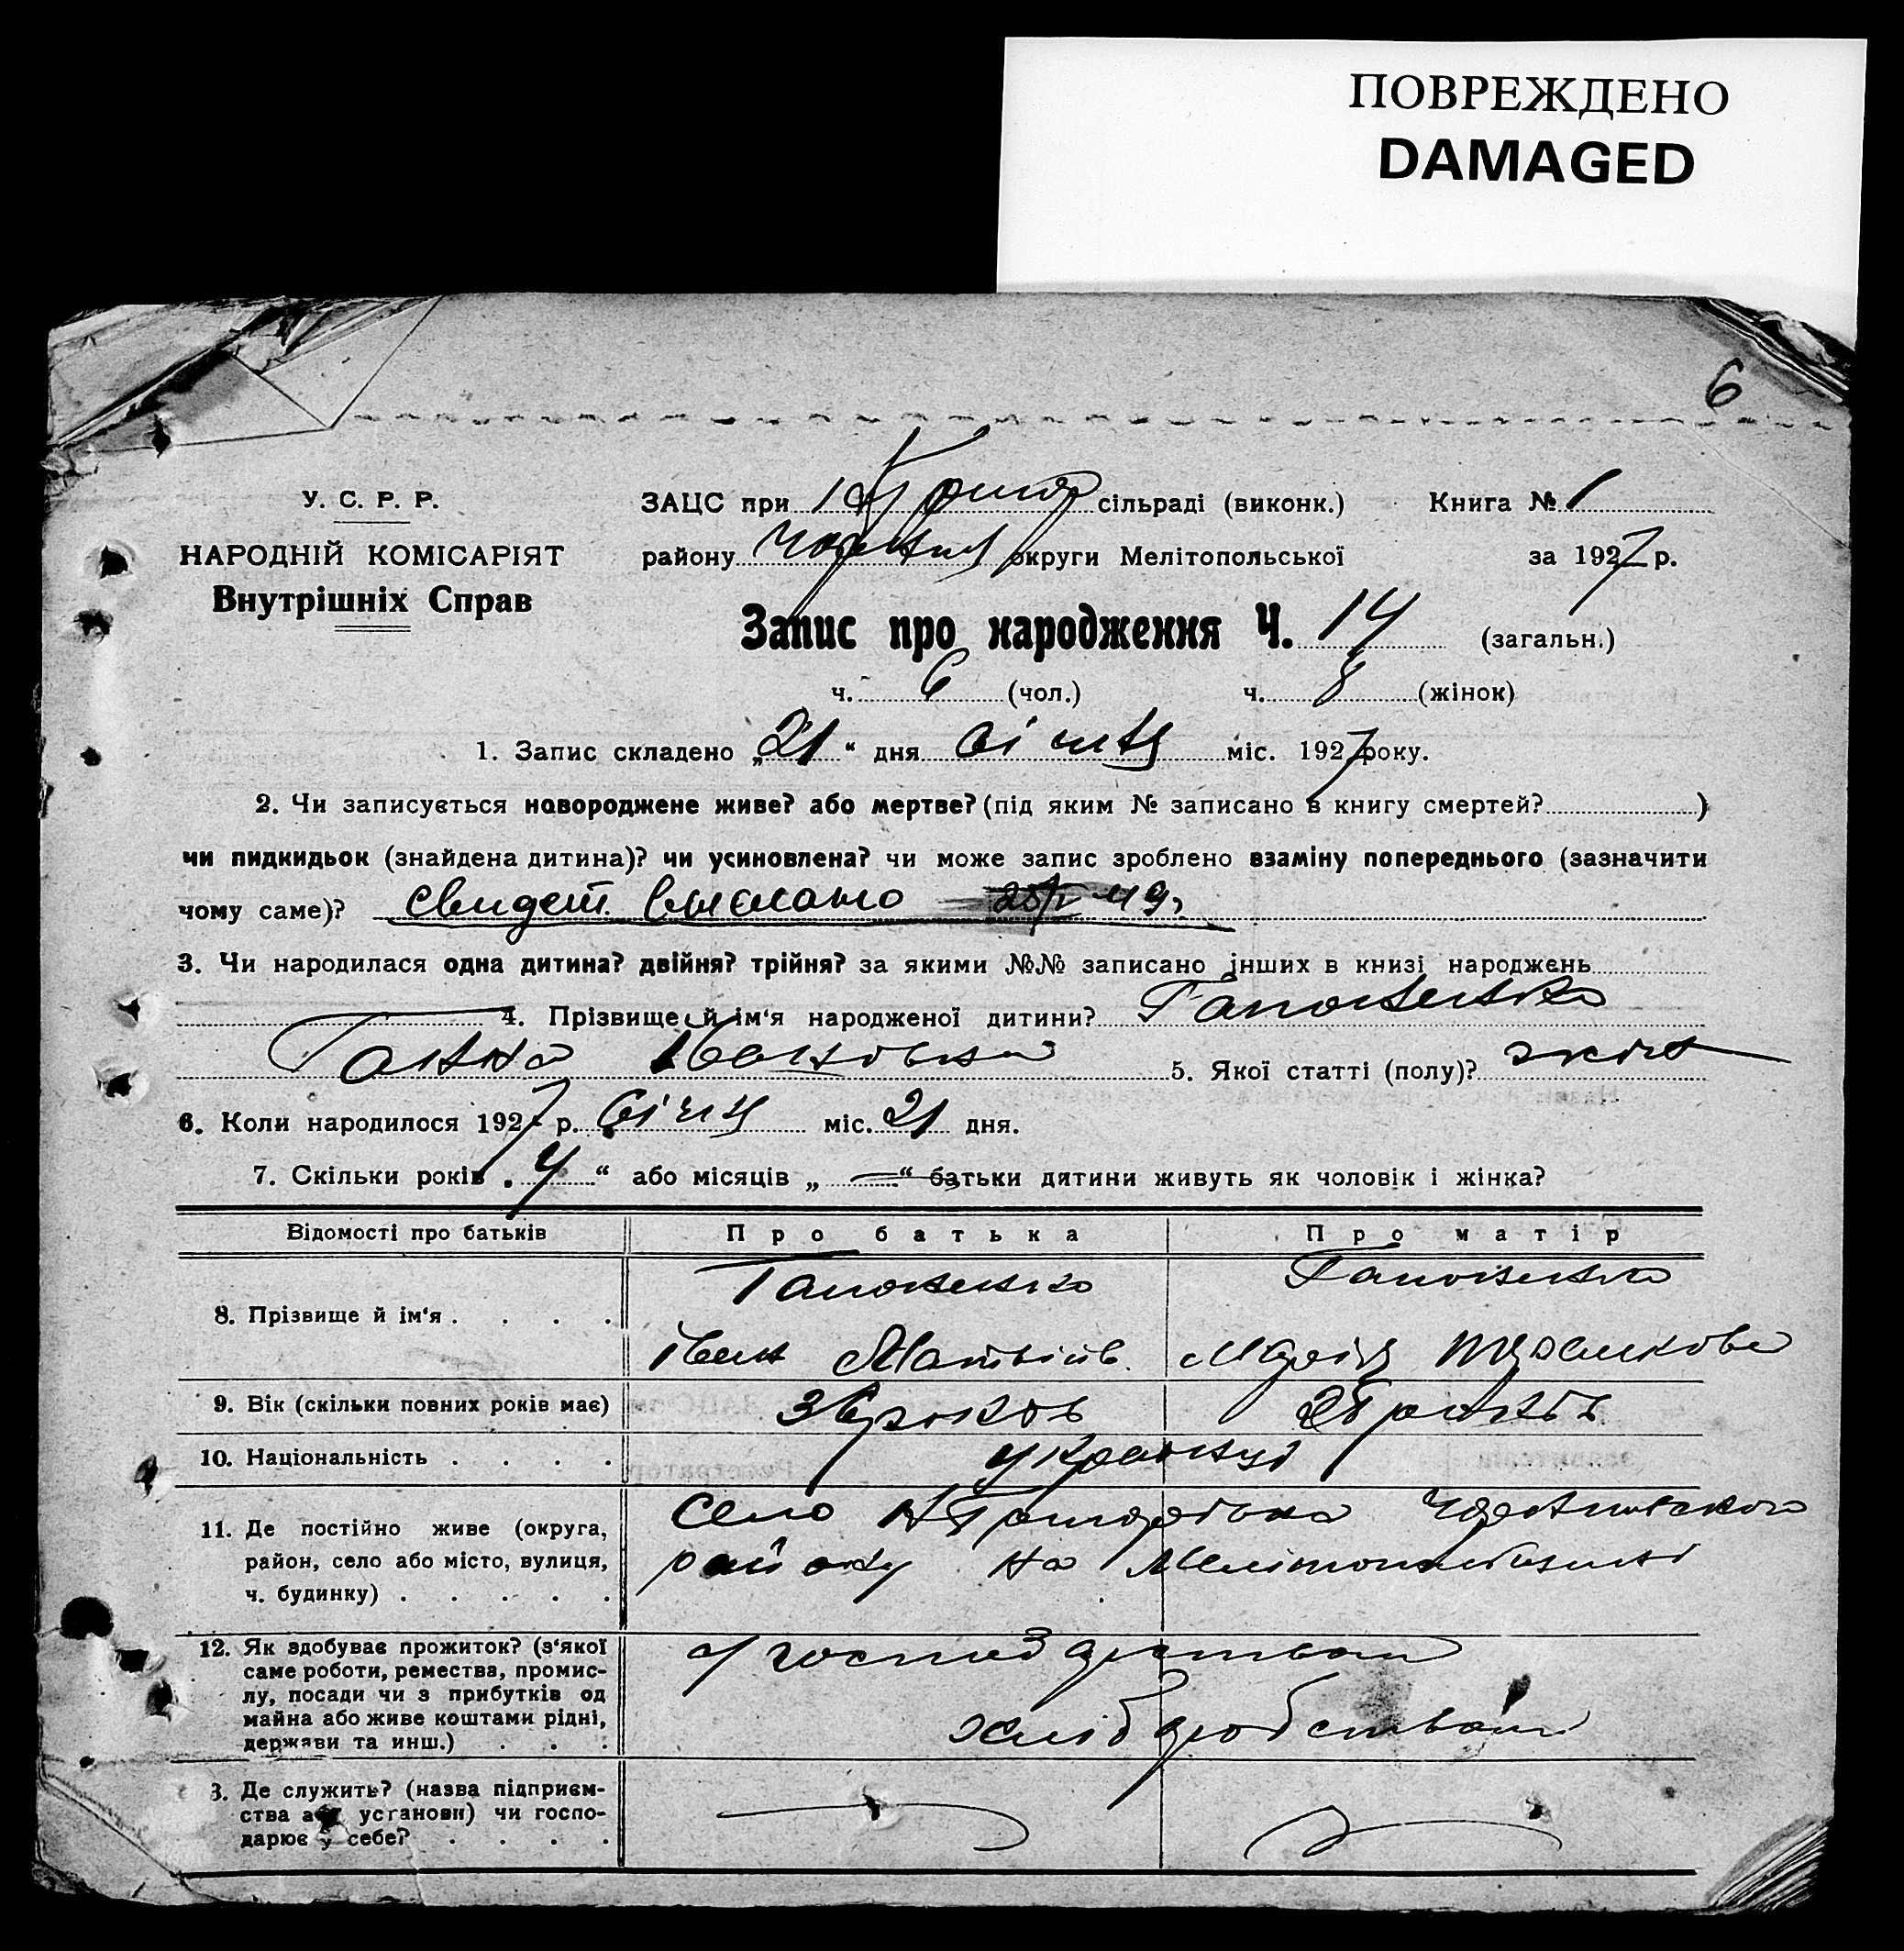 ПОВРЕЖДЕНО
DAMAGED
6
У. С. Р. Р.
НАРОДНІЙ КОМІСАРІЯТ
Внутрішніх Справ
ЗАЦС при сільраді (виконк.) Книга № 1
району округи Мелітопольської за 1927 р.
Запис про народження Ч. 14 (загальн.)
ч. 6 (чол.) ч. 8 (жінок)
1. Запис складено „21“ дня січня міс. 1927 року.
2. Чи записується новороджене живе? або мертве? (під яким № записано в книгу смертей? )
чи пидкидьок (знайдена дитина)? чи усиновлена? чи може запис зроблено взаміну попереднього (зазначити
чому саме)? свидет. выслано 49г.
3. Чи народилася одна дитина? двійня? трійня? за якими №№ записано інших в книзі народжень
4. Прізвище й ім'я народженої дитини? Гапоненко
Ганна Івановна 5. Якої статті (полу)? жіноч
6. Коли народилося 1927 р. січня міс. 21 дня.
7. Скільки років „4“ або місяців „—“ батьки дитини живуть як чоловік і жінка?
Відомості про батьків Про батька Про матір
8. Прізвище й ім'я . . . . Гапоненко Гапоненко
Іван Матвіїв. Марія
9. Вік (скільки повних років має) років років
10. Національність . . . . українці
11. Де постійно живе (округа,
район, село або місто, вулиця,
ч. будинку) . . . . .
село
району на Мелітопольщині
12. Як здобуває прожиток? (з'якої
саме роботи, ремества, промис-
лу, посади чи з прибутків од
майна або живе коштами рідні,
держави та инш.) . . .
хліборобством
3. Де служить? (назва підприєм-
ства або установи) чи госпо-
дарює у себе? . . . .